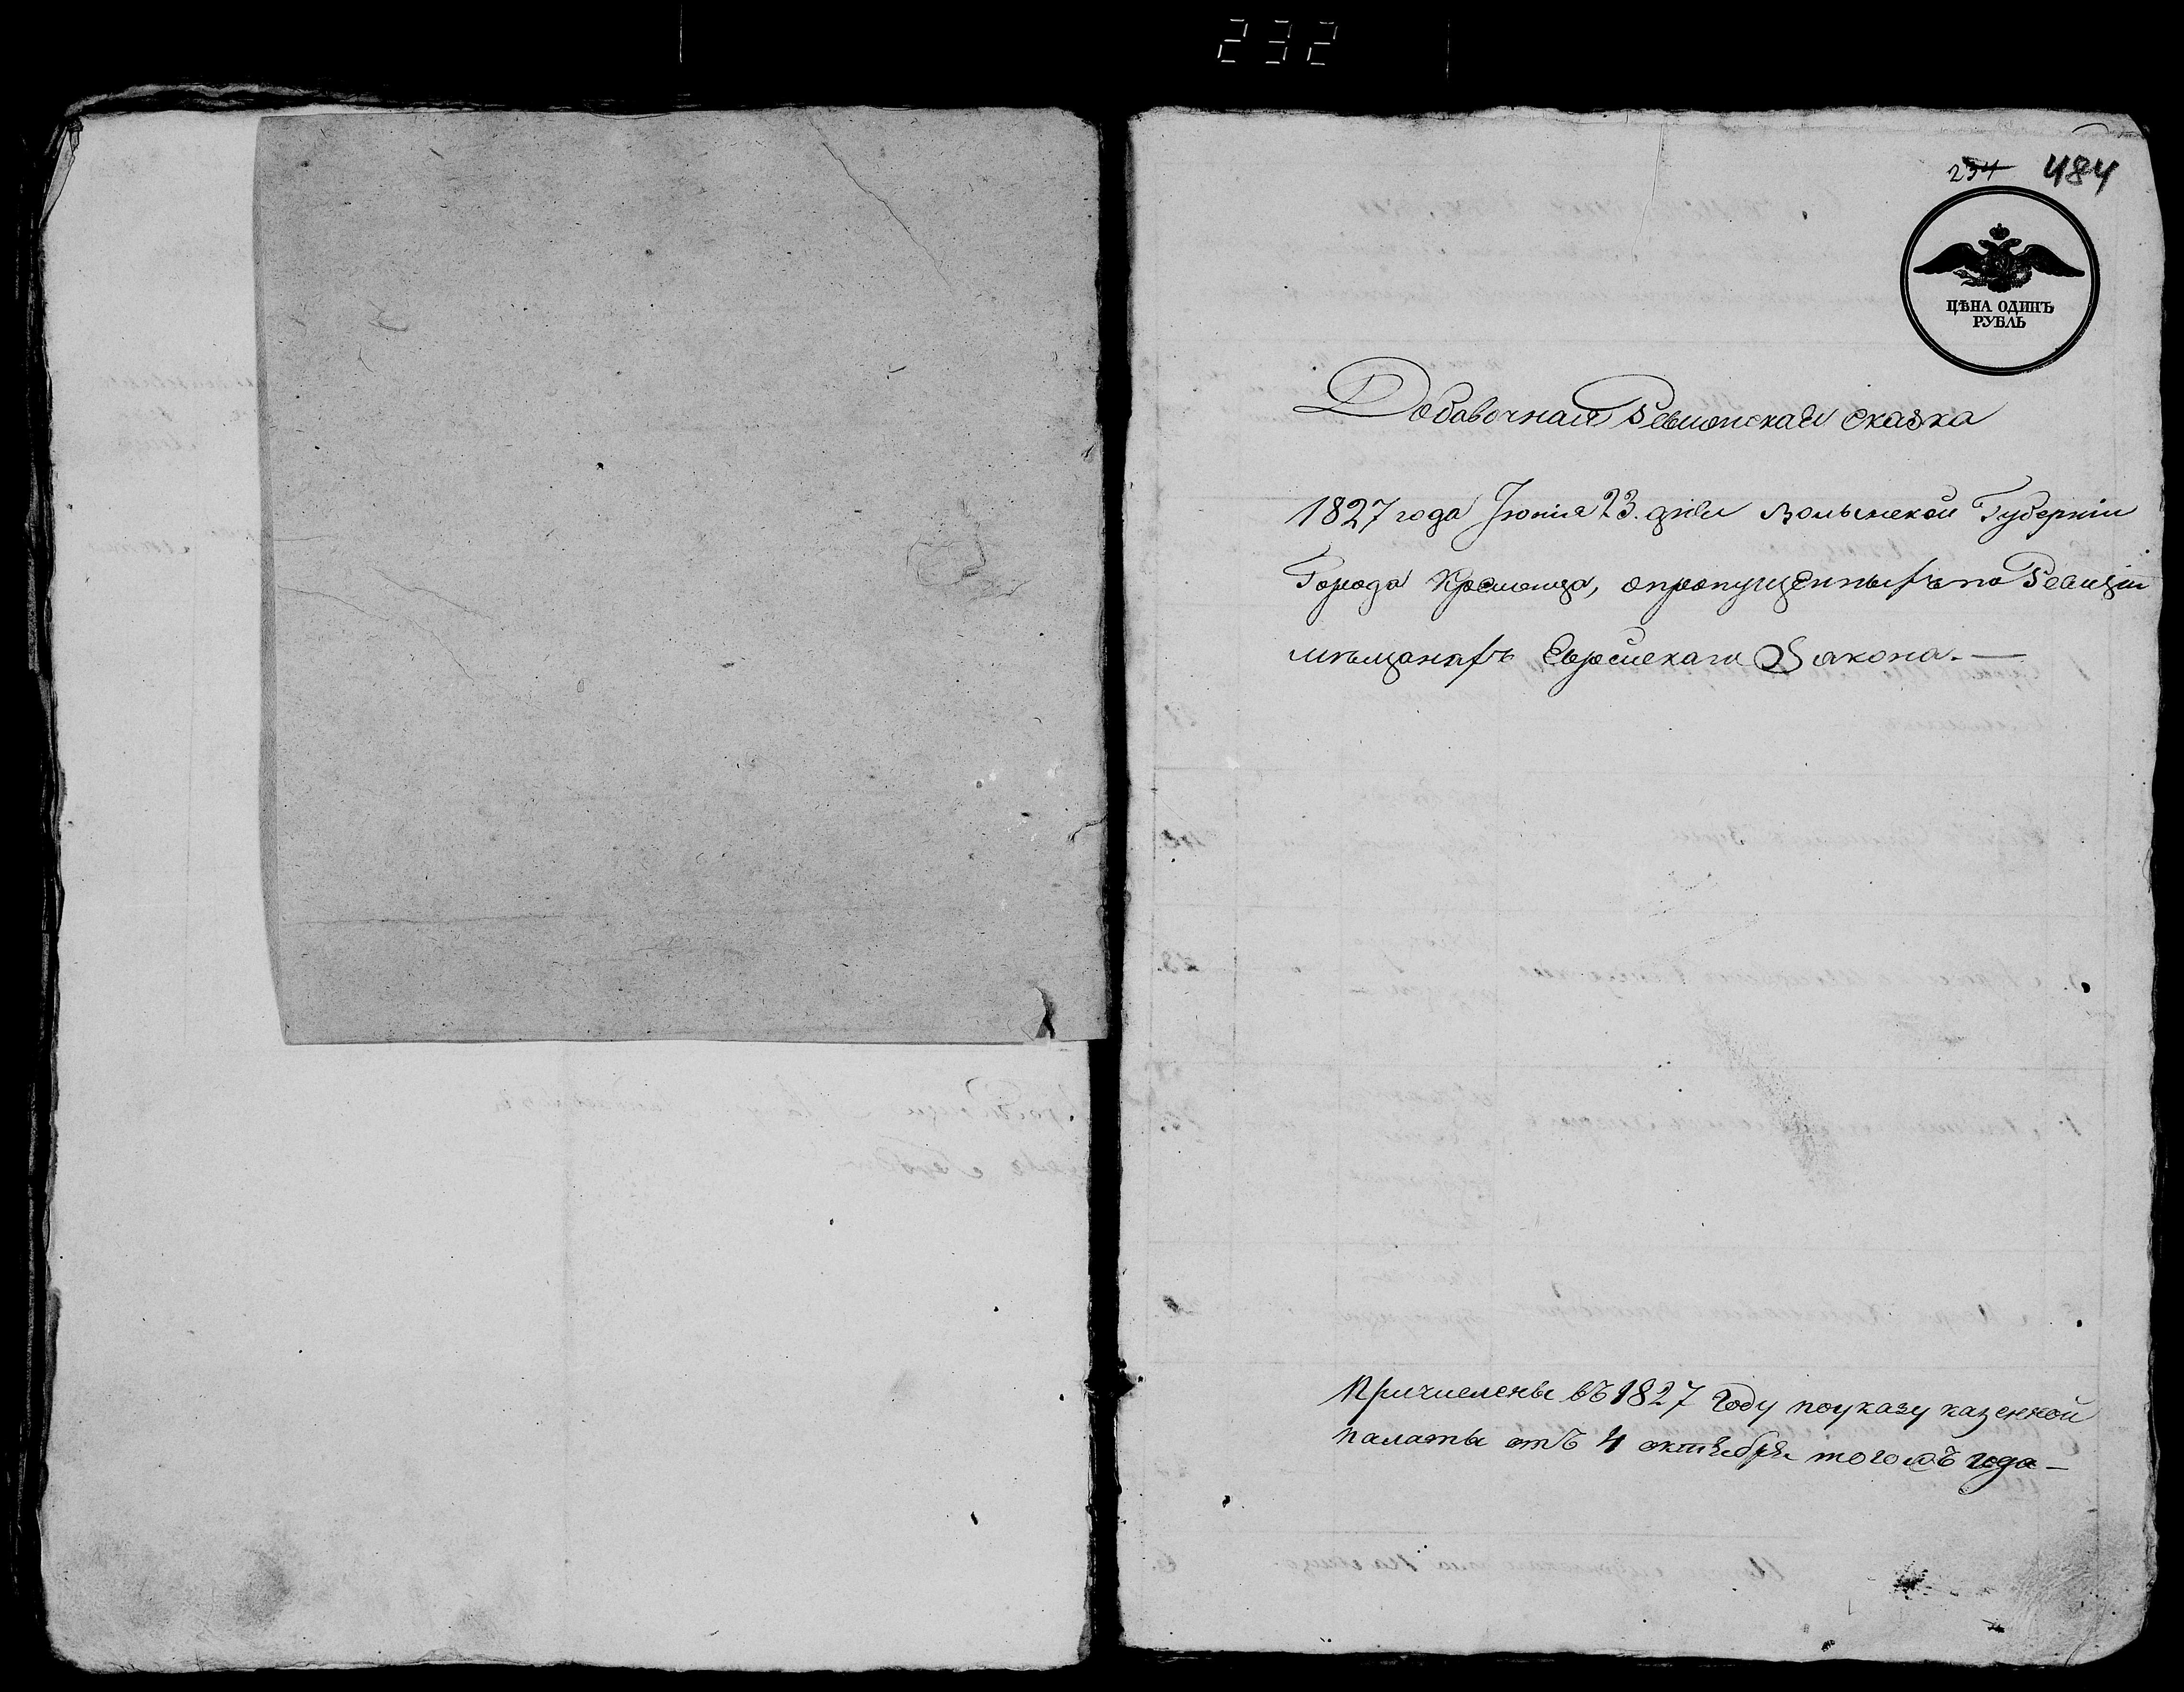 232
234 484
ЦѢНА ОДИНЪ
РУБЛЬ
Добавочная Ревизская сказка
1827 года Іюня 23. дня Волынской Губерніи
Города Кременца, опропущенныхъ по Ревизіи
мѣщанахъ Еврейскаго Закона. —
Причислены въ 1827 году поуказу казенной
палаты отъ 4 октября тогожъ года —